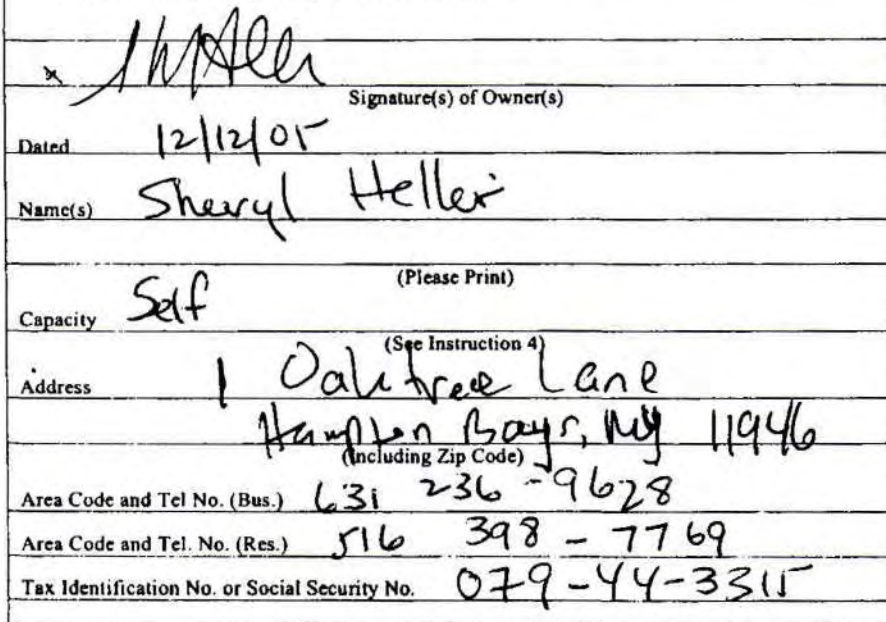 Signature(s) of Owner(s)
Dated 12/12/05
Name(s) Sheryl Heller
(Please Print)
Capacity Self
(See Instruction 4)
Address 1 Oaktree Lane
Hampton Bays, NY 11946
(Including Zip Code)
Area Code and Tel No. (Bus.) 631 236-9628
Area Code and Tel. No. (Res.) 516 398-7769
Tax Identification No. or Social Security No. 079-44-3315